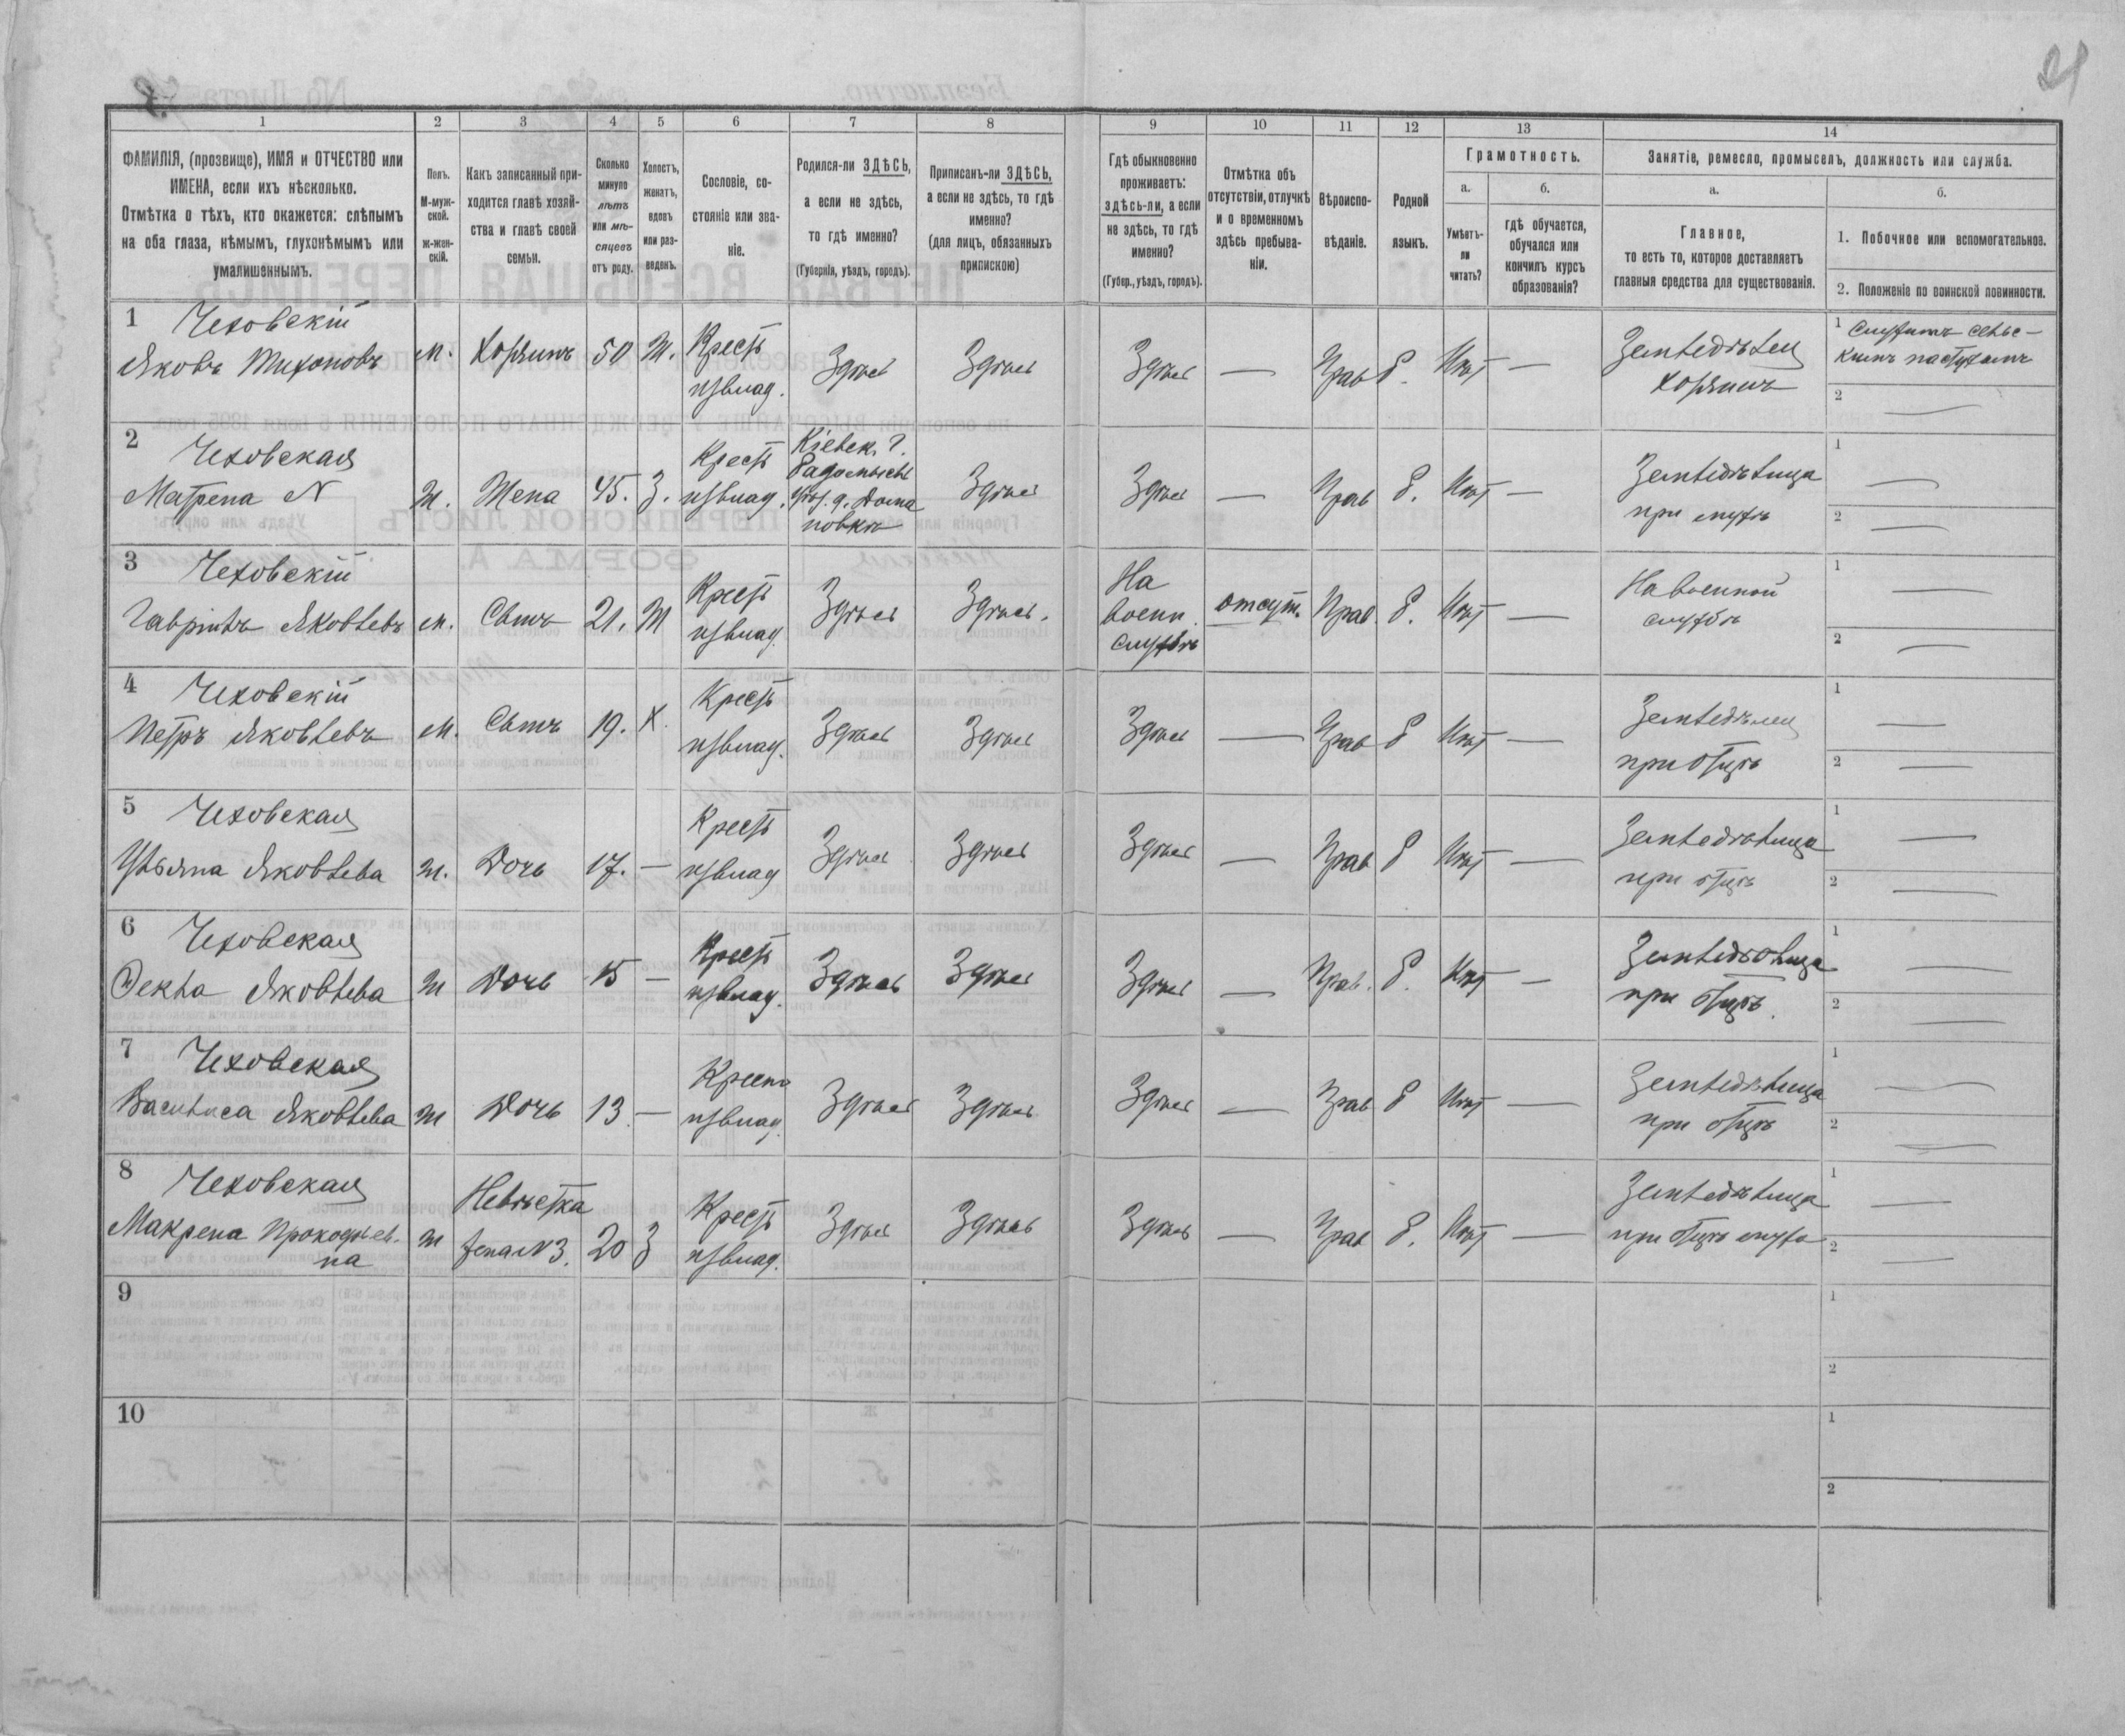 21
1 2 3 4 5 6 7 8 9 10 11 12 13 14
ФАМИЛІЯ, (прозвище), ИМЯ и ОТЧЕСТВО или
ИМЕНА, если ихъ нѣсколько.
Отмѣтка о тѣхъ, кто окажется: слѣпымъ
на оба глаза, нѣмымъ, глухонѣмымъ или
умалишеннымъ.
Полъ.
М-муж-
ской.
ж-жен-
скій.
Какъ записанный при-
ходится главѣ хозяй-
ства и главѣ своей
семьи.
Сколько
минуло
лѣтъ
или мѣ-
сяцевъ
отъ роду.
Холостъ,
женатъ,
вдовъ
или раз-
веденъ.
Сословіе, со-
стояніе или зва-
ніе.
Родился-ли ЗДѢСЬ,
а если не здѣсь,
то гдѣ именно?
(Губернія, уѣздъ, городъ).
Приписанъ-ли ЗДѢСЬ,
а если не здѣсь, то гдѣ
именно?
(для лицъ, обязанныхъ
припискою)
Гдѣ обыкновенно
проживаетъ:
здѣсь-ли, а если
не здѣсь, то гдѣ
именно?
(Губер., уѣздъ, городъ).
Отмѣтка объ
отсутствіи, отлучкѣ
и о временномъ
здѣсь пребыва-
ніи.
Вѣроиспо-
вѣданіе.
Родной
языкъ.
Грамотность.
а.
Умѣетъ-
ли
читать?
б.
гдѣ обучается,
обучался или
кончилъ курсъ
образованія?
Занятіе, ремесло, промыселъ, должность или служба.
а.
Главное,
то есть то, которое доставляетъ
главныя средства для существованія.
б.
1. Побочное или вспомогательное.
2. Положеніе по воинской повинности.
1 Чеховскій
Яковъ Тихоновъ м. Хозяинъ 50 Ж. Крест изъ влад. Здѣсь Здѣсь Здѣсь — Прав Р. Нѣт — Земледѣлец
хозяинъ
1 Служитъ сельс-
кимъ пастухомъ
2 —
2 Чеховская
Матрена N ж. Жена 45. З. Крест изъ влад. Кіевск. Г.
Радомысл
уѣз. д. Дома
новкѣ
Здѣсь Здѣсь — Прав Р. Нѣт — Земледѣлица
при мужѣ
1 —
2 —
3 Чеховскій
Гавріилъ Яковлевъ м. Сынъ 21. Ж Крест изъ влад. Здѣсь Здѣсь. На
воен.
службѣ
отсут. Прав. Р. Нѣт — На военной
службѣ
1 —
2 —
4 Чеховскій
Петръ Яковлевъ м. Сынъ 19. Х. Крест изъ влад. Здѣсь Здѣсь Здѣсь — Прав Р Нѣт — Земледѣлец
при отцѣ
1 —
2 —
5 Чеховская
Ульяна Яковлева ж. Дочь 17. — Крест изъ влад Здѣсь Здѣсь Здѣсь — Прав Р Нѣт — Земледѣлица
при отцѣ
1 —
2 —
6 Чеховская
Фекла Яковлева ж Дочь 15 — Крест изъ влад. Здѣсь Здѣсь Здѣсь — Прав. Р. Нѣт — Земледѣлица
при отцѣ.
1 —
2 —
7 Чеховская
Василиса Яковлева ж Дочь 13 — Крест изъ влад. Здѣсь Здѣсь Здѣсь — Прав Р Нѣт — Земледѣлица
при отцѣ
1 —
2 —
8 Чеховская
Макрена Прокофьев-
на
ж Невѣстка
жена N 3. 20 З Крест изъ влад. Здѣсь Здѣсь Здѣсь — Прав Р. Нѣт — Земледѣлица
при отцѣ мужа
1 —
2 —
9
1
2
10
1
2